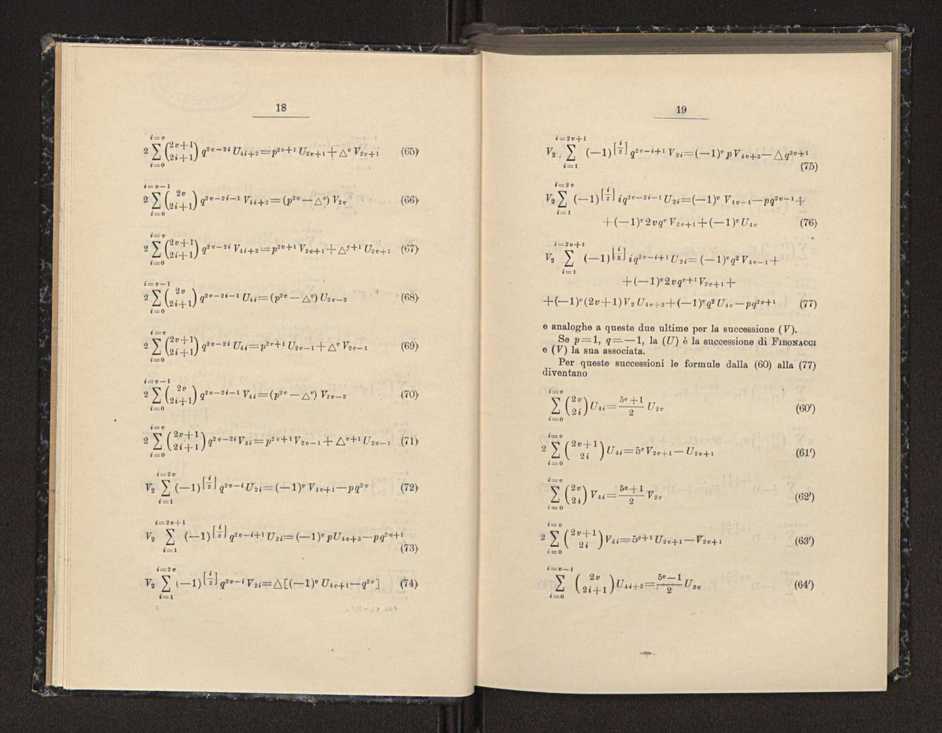 18
2 \sum_{i=0}^{i=v} \binom{2v+1}{2i+1} q^{2v-2i} U_{4i+2} = p^{2v+1} U_{2v+1} + △^v V_{2v+1} (65)
2 \sum_{i=0}^{i=v-1} \binom{2v}{2i+1} q^{2v-2i-1} V_{4i+2} = (p^{2v} - △^v) V_{2v} (66)
2 \sum_{i=0}^{i=v} \binom{2v+1}{2i+1} q^{2v-2i} V_{4i+2} = p^{2v+1} V_{2v+1} + △^{v+1} U_{2v+1} (67)
2 \sum_{i=0}^{i=v-1} \binom{2v}{2i+1} q^{2v-2i-1} U_{4i} = (p^{2v} - △^v) U_{2v-2} (68)
2 \sum_{i=0}^{i=v} \binom{2v+1}{2i+1} q^{2v-2i} U_{4i} = p^{2v+1} U_{2v-1} + △^v V_{2v-1} (69)
2 \sum_{i=0}^{i=v-1} \binom{2v}{2i+1} q^{2v-2i-1} V_{4i} = (p^{2v} - △^v) V_{2v-2} (70)
2 \sum_{i=0}^{i=v} \binom{2v+1}{2i+1} q^{2v-2i} V_{4i} = p^{2v+1} V_{2v-1} + △^{v+1} U_{2v-1} (71)
V_2 \sum_{i=1}^{i=2v} (-1)^{[\frac{i}{2}]} q^{2v-i} U_{2i} = (-1)^v V_{4v+1} - pq^{2v} (72)
V_2 \sum_{i=1}^{i=2v+1} (-1)^{[\frac{i}{2}]} q^{2v-i+1} U_{2i} = (-1)^v p U_{4v+3} - pq^{2v+1}
(73)
V_2 \sum_{i=1}^{i=2v} (-1)^{[\frac{i}{2}]} q^{2v-i} V_{2i} = △[(-1)^v U_{4v+1} - q^{2v}] (74)
19
V_2 \sum_{i=1}^{i=2v+1} (-1)^{[\frac{i}{2}]} q^{2v-i+1} V_{2i} = (-1)^v p V_{4v+3} - △q^{2v+1}
(75)
V_2 \sum_{i=1}^{i=2v} (-1)^{[\frac{i}{2}]} i q^{2v-2i-1} U_{2i} = (-1)^v V_{4v-1} - pq^{2v-1} +
+ (-1)^v 2vq^v V_{2v+1} + (-1)^v U_{4v} (76)
V_2 \sum_{i=1}^{i=2v+1} (-1)^{[\frac{i}{2}]} i q^{2v-i+1} U_{2i} = (-1)^v q^2 V_{4v-1} +
+ (-1)^v 2vq^{v+1} V_{2v+1} +
+ (-1)^v (2v+1) V_2 U_{4v+2} + (-1)^v q^2 U_{4v} - pq^{2v+1} (77)
e analoghe a queste due ultime per la successione (V).
Se p=1, q=—1, la (U) è la successione di FIBONACCI
e (V) la sua associata.
Per queste successioni le formule dalla (60) alla (77)
diventano
\sum_{i=0}^{i=v} \binom{2v}{2i} U_{4i} = \frac{5^v+1}{2} U_{2v} (60')
2 \sum_{i=0}^{i=v} \binom{2v+1}{2i} U_{4i} = 5^v V_{2v+1} - U_{2v+1} (61')
\sum_{i=0}^{i=v} \binom{2v}{2i} V_{4i} = \frac{5^v+1}{2} V_{2v} (62')
2 \sum_{i=0}^{i=v} \binom{2v+1}{2i} V_{4i} = 5^{v+1} U_{2v+1} - V_{2v+1} (63')
\sum_{i=0}^{i=v-1} \binom{2v}{2i+1} U_{4i+2} = \frac{5^v-1}{2} U_{2v} (64')